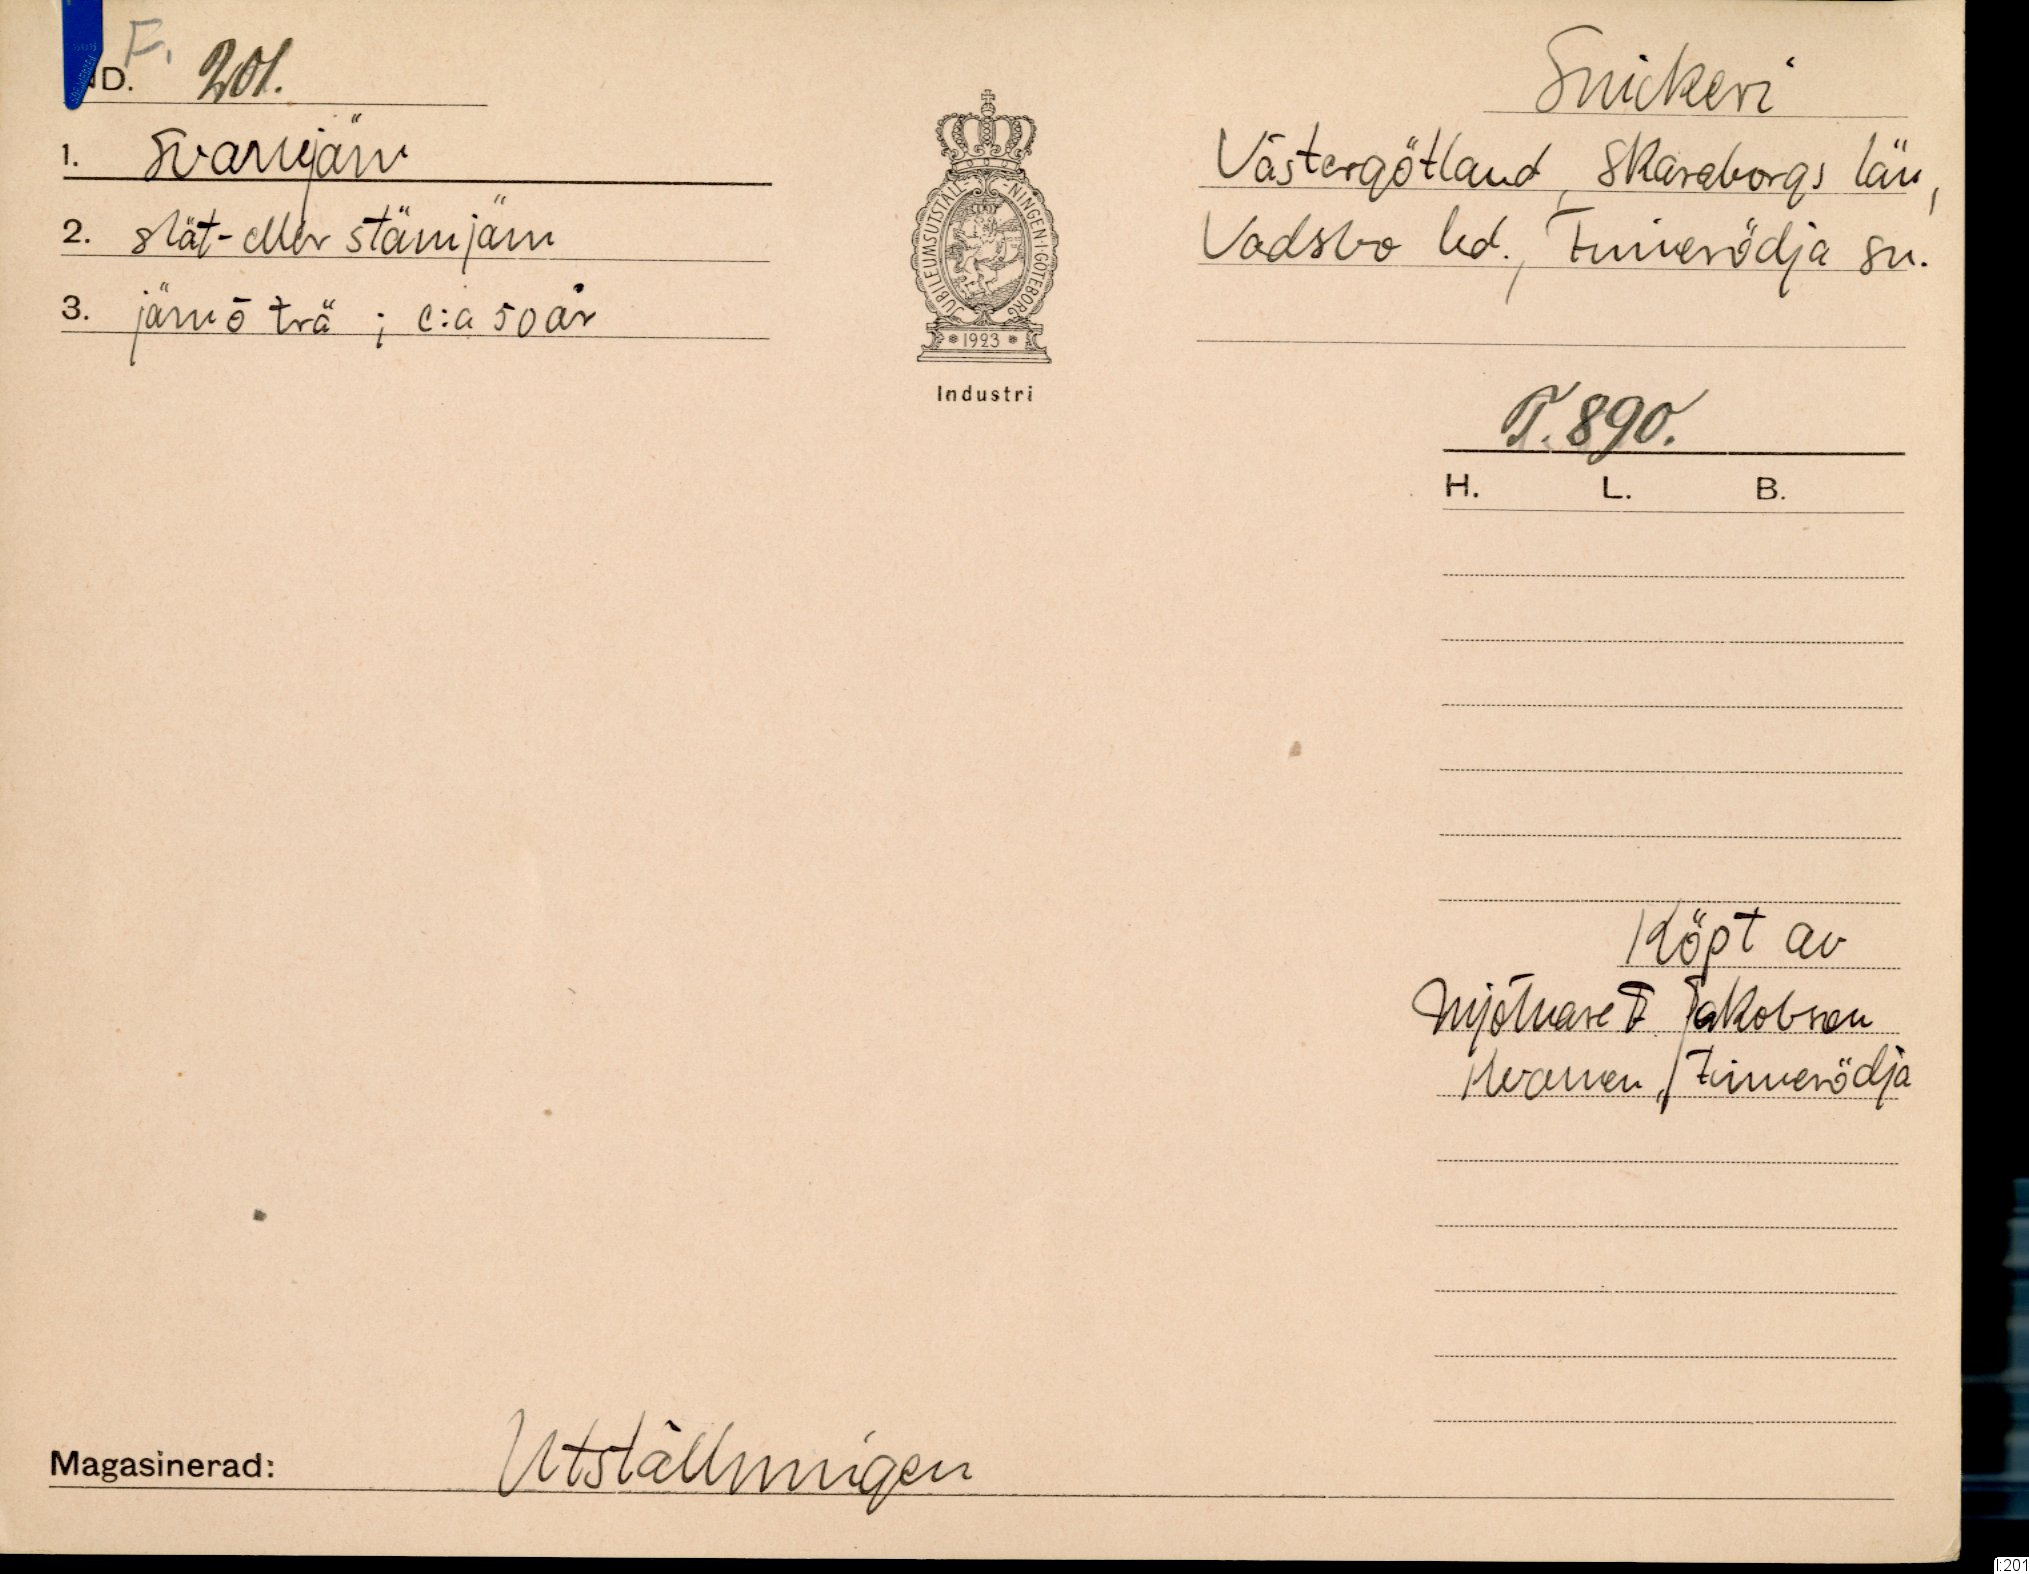 F.
ND. 201.
1. Svarvjärn
2. slät- eller stämjärn
3. järn o trä ; c:a 50 år
JUBILEUMSUTSTÄLL-NINGEN·I·GÖTEBORG
1923
Industri
Snickeri
Västergötland, Skaraborgs län,
Vadsbo hd., Finnerödja sn.
T. 890.
H. L. B.
Köpt av
Mjölnare F. Jakobson
Kvarnen, Finnerödja
Magasinerad: Utställningen
I:201